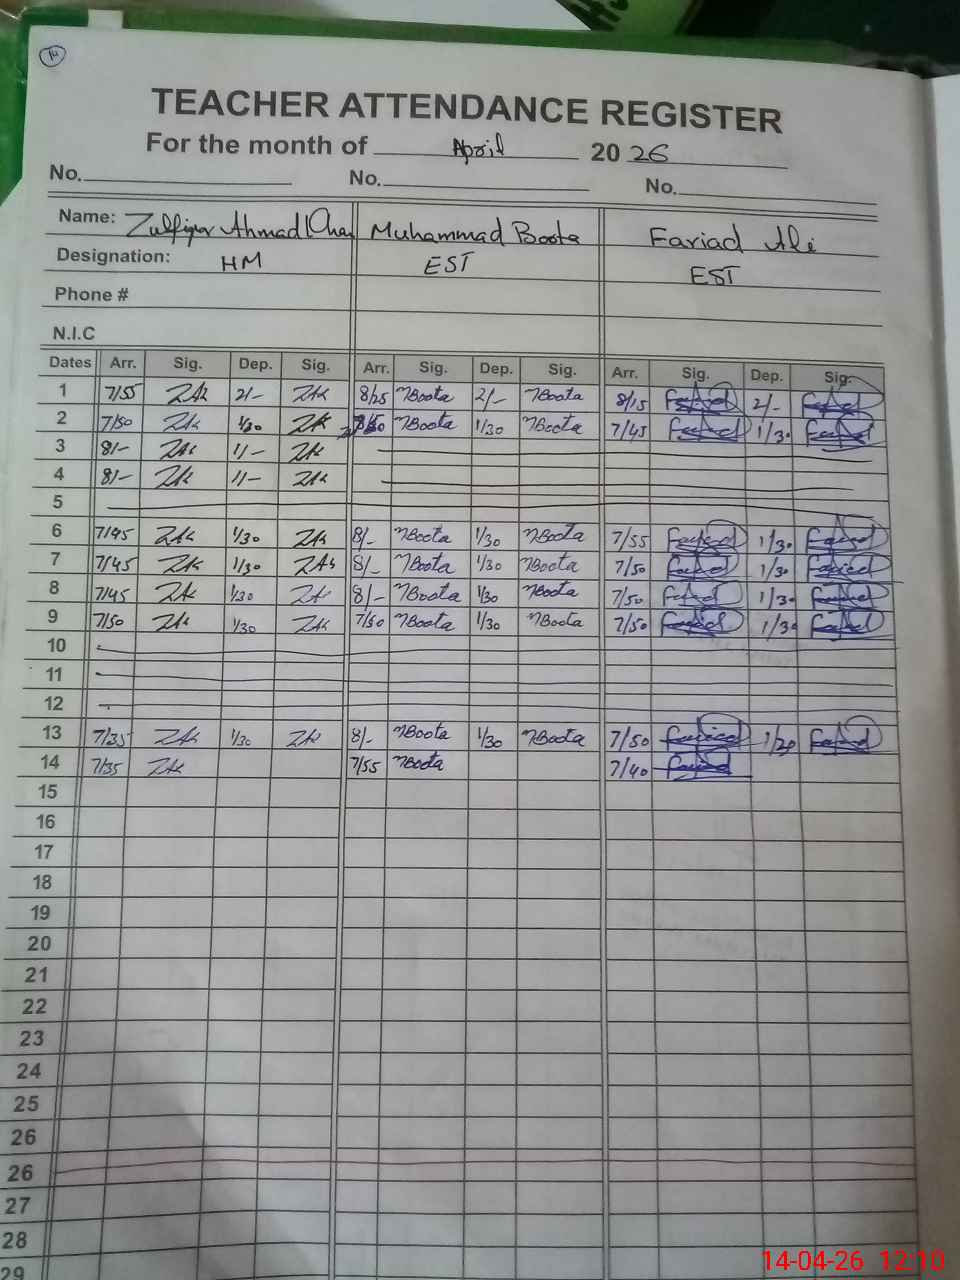 14
TEACHER ATTENDANCE REGISTER
For the month of April 20 26
No. No. No.
Name: Zulfiqar Ahmad Khan Muhammad Boota Fariad Ali
Designation: HM EST EST
Phone #
N.I.C
Dates Arr. Sig. Dep. Sig. Arr. Sig. Dep. Sig. Arr. Sig. Dep. Sig.
1 7/55 ZAk 2/- ZAk 8/25 MBoota 2/- MBoota 8/15 Fariad 2/- Fariad
2 7/50 ZAk 1/30 ZAk MBoota 1/30 MBoota 7/45 Fariad 1/30 Fariad
3 8/- ZAk 11/- ZAk
4 8/- ZAk 11/- ZAk
5
6 7/45 ZAk 1/30 ZAk 8/- MBoota 1/30 MBoota 7/55 Fariad 1/30 Fariad
7 7/45 ZAk 1/30 ZAk 8/- MBoota 1/30 MBoota 7/50 Fariad 1/30 Fariad
8 7/45 ZAk 1/30 ZAk 8/- MBoota 1/30 MBoota 7/50 Fariad 1/30 Fariad
9 7/50 ZAk 1/30 ZAk 7/50 MBoota 1/30 MBoota 7/50 Fariad 1/30 Fariad
10
11
12
13 7/35 ZAk 1/30 ZAk 8/- MBoota 1/30 MBoota 7/50 Fariad Fariad
14 7/35 ZAk 7/55 MBoota 7/40 Fariad
15
16
17
18
19
20
21
22
23
24
25
26
26
27
28
29
14-04-26 12:10